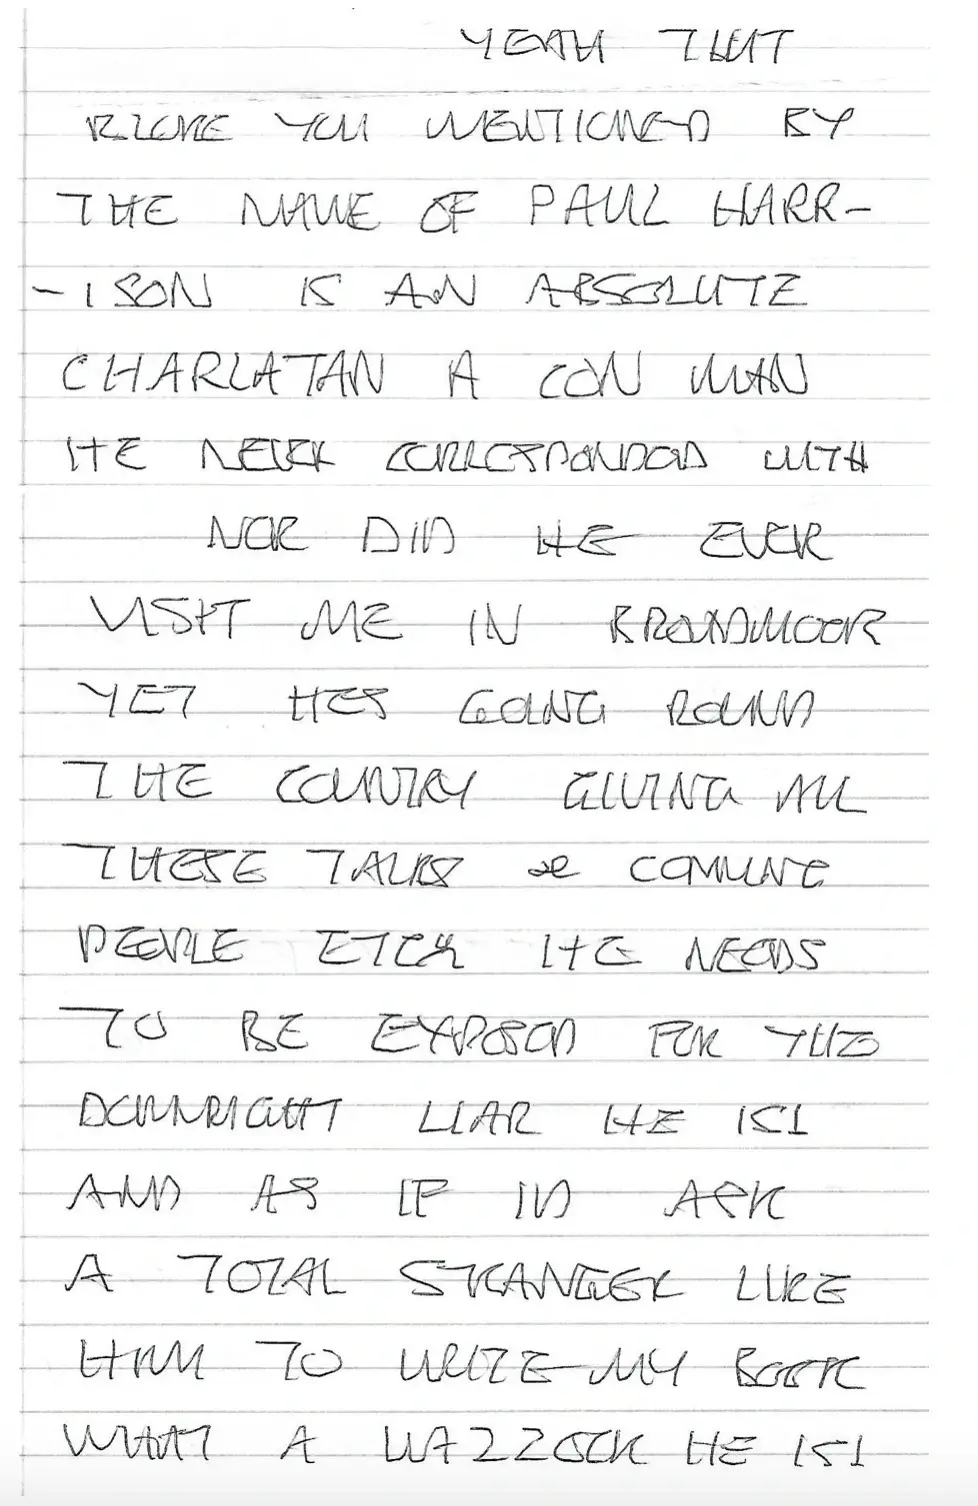 YEAH THAT
BLOKE YOU MENTIONED BY
THE NAME OF PAUL HARR-
-ISON IS AN ABSOLUTE
CHARLATAN A CON MAN
HE NEVER CORRESPONDED WITH
NOR DID HE EVER
VISIT ME IN BROADMOOR
YET HES GOING ROUND
THE COUNTRY GIVING ALL
THESE TALKS & CONNING
PEOPLE ETCR HE NEEDS
TO BE EXPOSED FOR THE
DOWNRIGHT LIAR HE IS!
AND AS IF ID ASK
A TOTAL STRANGER LIKE
HIM TO WRITE MY BOOK
WHAT A WAZZOCK HE IS!